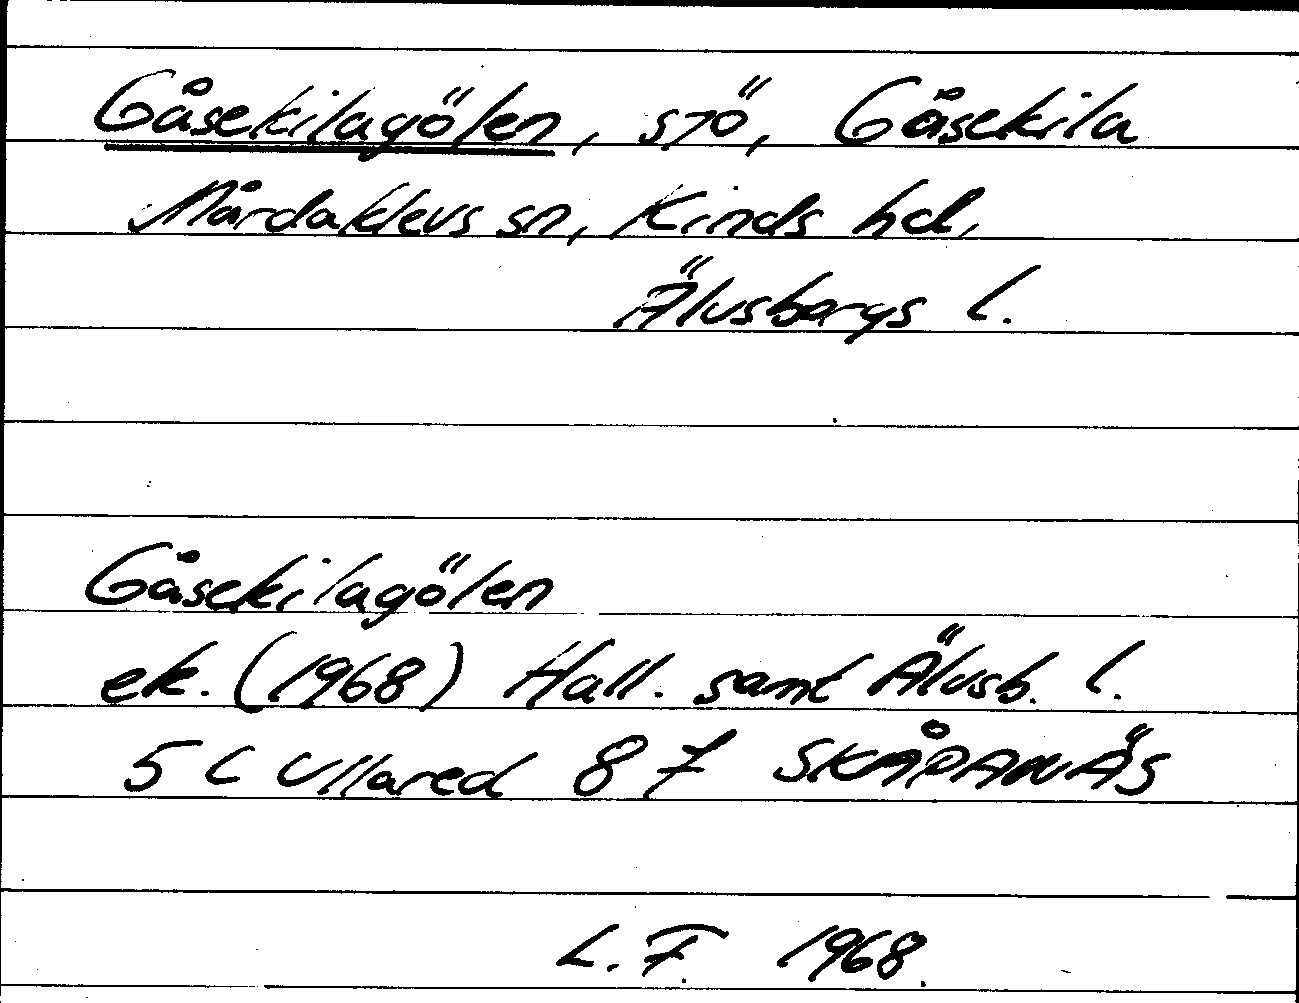 Gåsekilagölen, sjö, Gåsekila
Mårdaklevs sn, Kinds hd,
Älvsborgs l.
Gåsekilagölen
ek. (1968) Hall. samt Älvsb. l.
5 C Ullared 8 f SKÅPANÄS
L. F. 1968.